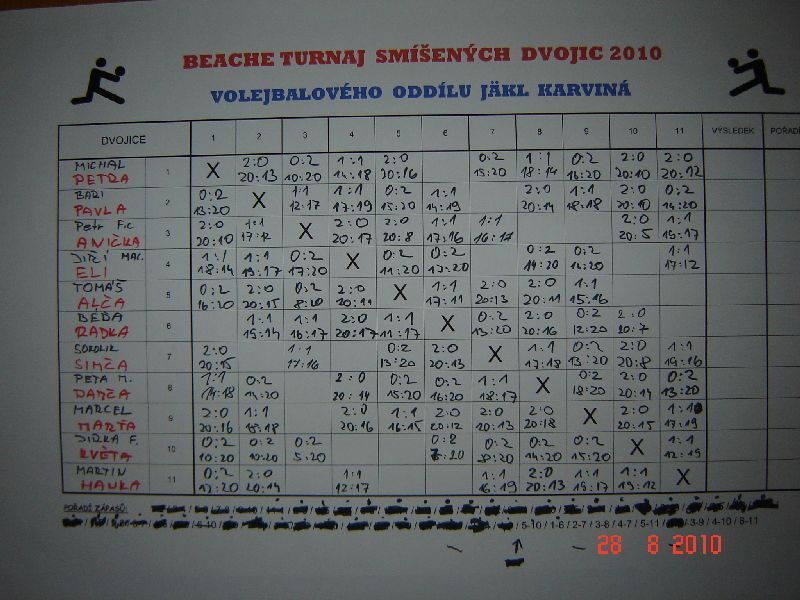 BEACHE TURNAJ SMÍŠENÝCH DVOJIC 2010
VOLEJBALOVÉHO ODDÍLU JÄKL KARVINÁ
DVOJICE 1 2 3 4 5 6 7 8 9 10 11 VÝSLEDEK POŘADÍ
MICHAL 2:0 0:2 1:1 2:0 0:2 1:1 0:2 2:0 2:0
PETRA 1 X 20:13 10:20 14:18 20:16 15:20 18:14 16:20 20:10 20:12
BARI 0:2 1:1 1:1 0:2 1:1 2:0 1:1 2:0 0:2
PAVLA 2 13:20 X 12:17 17:19 15:20 14:19 20:14 18:18 20:10 14:20
Petr F. 2:0 1:1 2:0 2:0 1:1 1:1 2:0 1:1
ANIČKA 3 20:10 17:12 X 20:17 20:8 17:16 16:17 20:5
JIŘÍ Mac. 1:1 1:1 0:2 0:2 0:2 0:2 0:2 1:1
ELI 4 18:14 19:17 17:20 X 11:20 14:20 14:20 17:12
TOMÁŠ 0:2 2:0 0:2 2:0 1:1 2:0 2:0 1:1
ALČA 5 16:20 20:15 8:20 20:11 X 17:11 20:13 20:11 15:16
BÉĎA 1:1 1:1 2:0 1:1 0:2 2:0 0:2 2:0
RADKA 6 16:17 20:17 11:17 X 13:20 20:16 12:20 20:7
2:0 1:1 0:2 2:0 1:1 0:2 2:0 1:1
SIMČA 7 20:15 17:16 13:20 20:13 X 17:18 13:20 20:8 19:16
PETR M. 1:1 0:2 2:0 0:2 0:2 1:1 0:2 2:0 0:2
8 14:18 14:20 20:14 15:20 16:20 18:17 X 18:20 20:14 13:20
MARCEL 2:0 1:1 2:0 1:1 2:0 2:0 2:0 2:0 1:1
MARŤA 9 20:16 18:18 20:16 16:15 20:12 20:13 20:18 X 20:15 17:19
JIRKA F. 0:2 0:2 0:2 0:2 0:2 0:2 0:2 1:1
KVĚTA 10 10:20 10:20 5:20 7:20 8:20 14:20 15:20 X 12:19
MARTIN 0:2 2:0 1:1 1:1 2:0 1:1 1:1
HANKA 11 12:20 20:14 12:17 16:19 20:13 19:17 19:12 X
POŘADÍ ZÁPASŮ:
5-10 / 1-6 / 2-7 / 3-8 / 4-7 / 5-11 / 3-9 / 4-10 / 6-11
28 8 2010